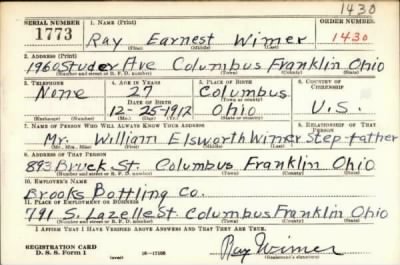 1430
SERIAL NUMBER 1. NAME (Print) ORDER NUMBER
1773 Ray Earnest Wimer 1430
(First) (Middle) (Last)
2. ADDRESS (Print)
1960 Studer Ave Columbus Franklin Ohio
(Number and street or R. F. D. number) (Town) (County) (State)
3. TELEPHONE 4. AGE IN YEARS 5. PLACE OF BIRTH 6. COUNTRY OF CITIZENSHIP
None 27 Columbus
DATE OF BIRTH (Town or county)
12-25-1912 Ohio U.S.
(Exchange) (Number) (Mo.) (Day) (Yr.) (State or country)
7. NAME OF PERSON WHO WILL ALWAYS KNOW YOUR ADDRESS 8. RELATIONSHIP OF THAT PERSON
Mr. William Elsworth Wimer Step-father
(Mr., Mrs., Miss) (First) (Middle) (Last)
9. ADDRESS OF THAT PERSON
893 St. Columbus Franklin Ohio
(Number and street or R. F. D. number) (Town) (County) (State)
10. EMPLOYER'S NAME
Brooks Bottling Co.
11. PLACE OF EMPLOYMENT OR BUSINESS
791 S. Lazelle St. Columbus Franklin Ohio
(Number and street or R. F. D. number) (Town) (County) (State)
I AFFIRM THAT I HAVE VERIFIED ABOVE ANSWERS AND THAT THEY ARE TRUE.
REGISTRATION CARD
D. S. S. Form 1 16-17105 Ray Wimer
(over) (Registrant's signature)